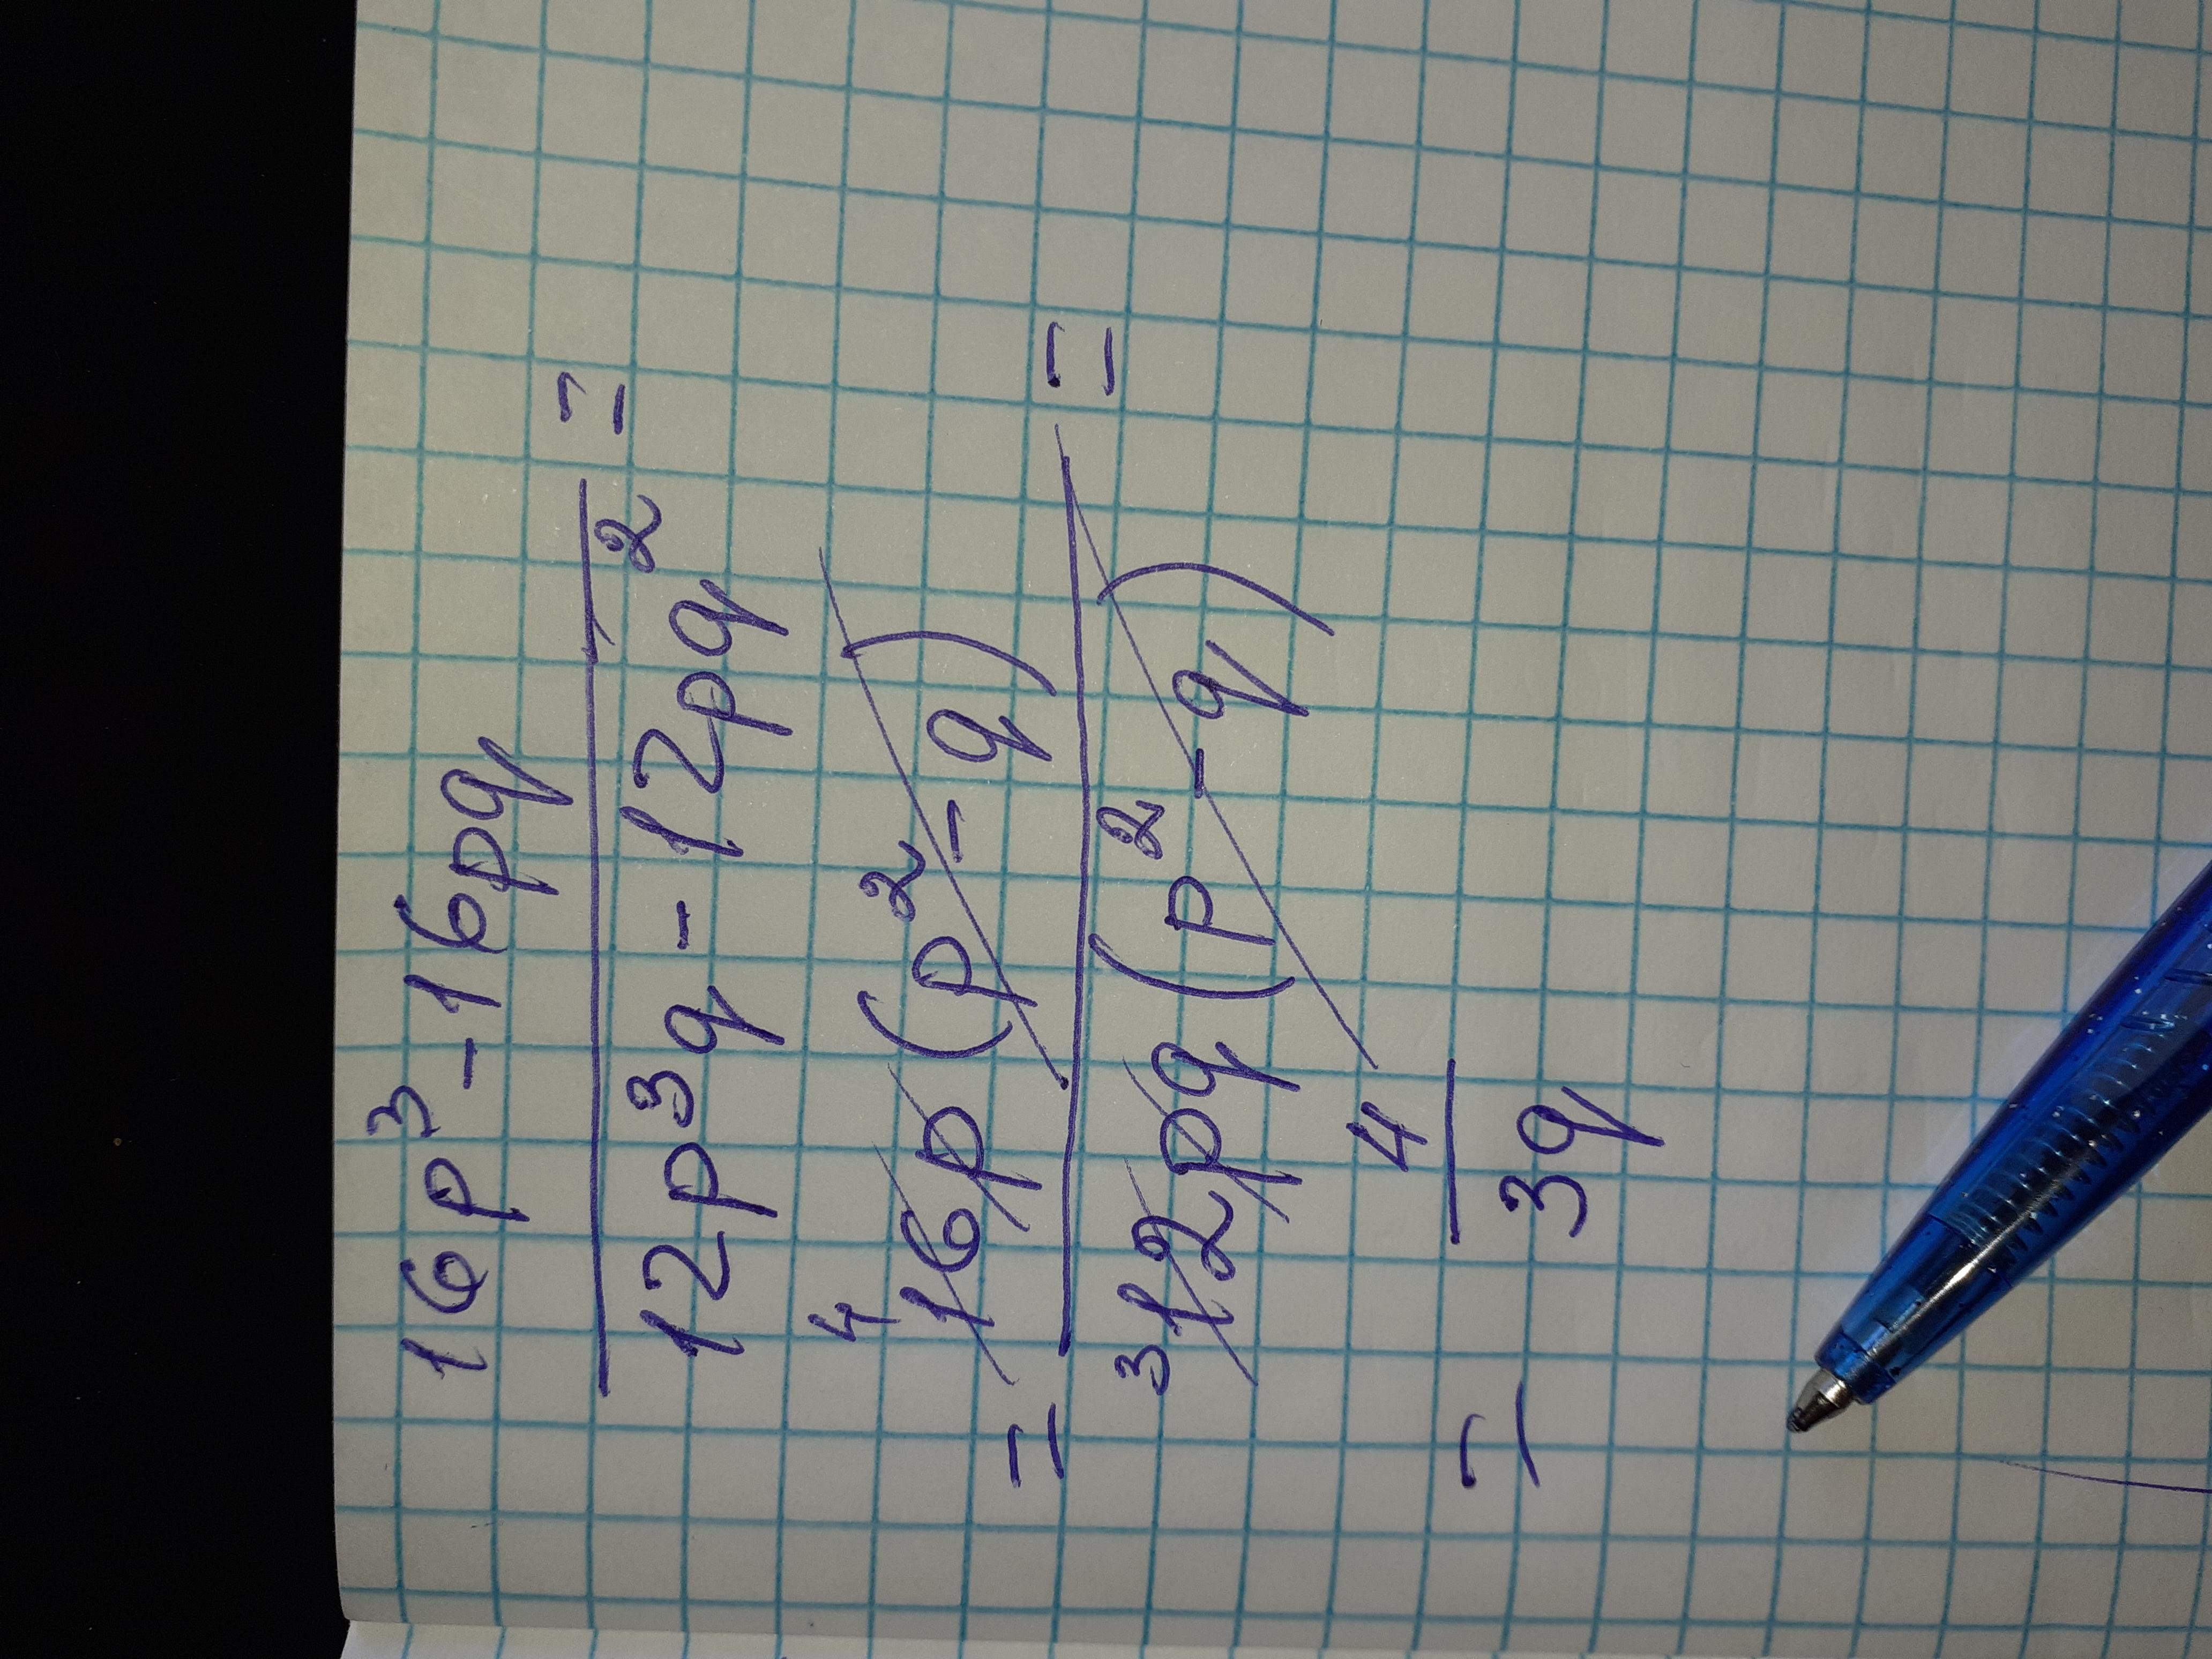 16p³-16pq
12p³q-12pq² =
= ⁴16p(p²-q)
³12pq(p²-q) =
= 4
3q